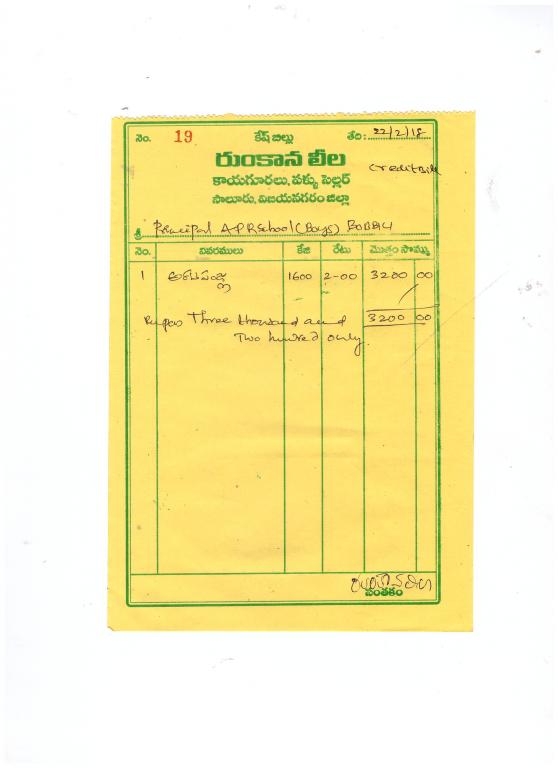 నెం. 19 కేష్ బిల్లు తేది: 22/2/18
రుంకాన లీల
Credit Bill
కాయగూరలు, పళ్ళు సెల్లర్
సాలూరు, విజయనగరం జిల్లా
శ్రీ Principal A P R School (Boys) BOBBILI
నెం. వివరములు కేజి రేటు మొత్తం సొమ్ము
1 అరటిపండ్లు 1600 2-00 3200 00
Rupees Three thousand and 3200 00
Two hundred only
సంతకం